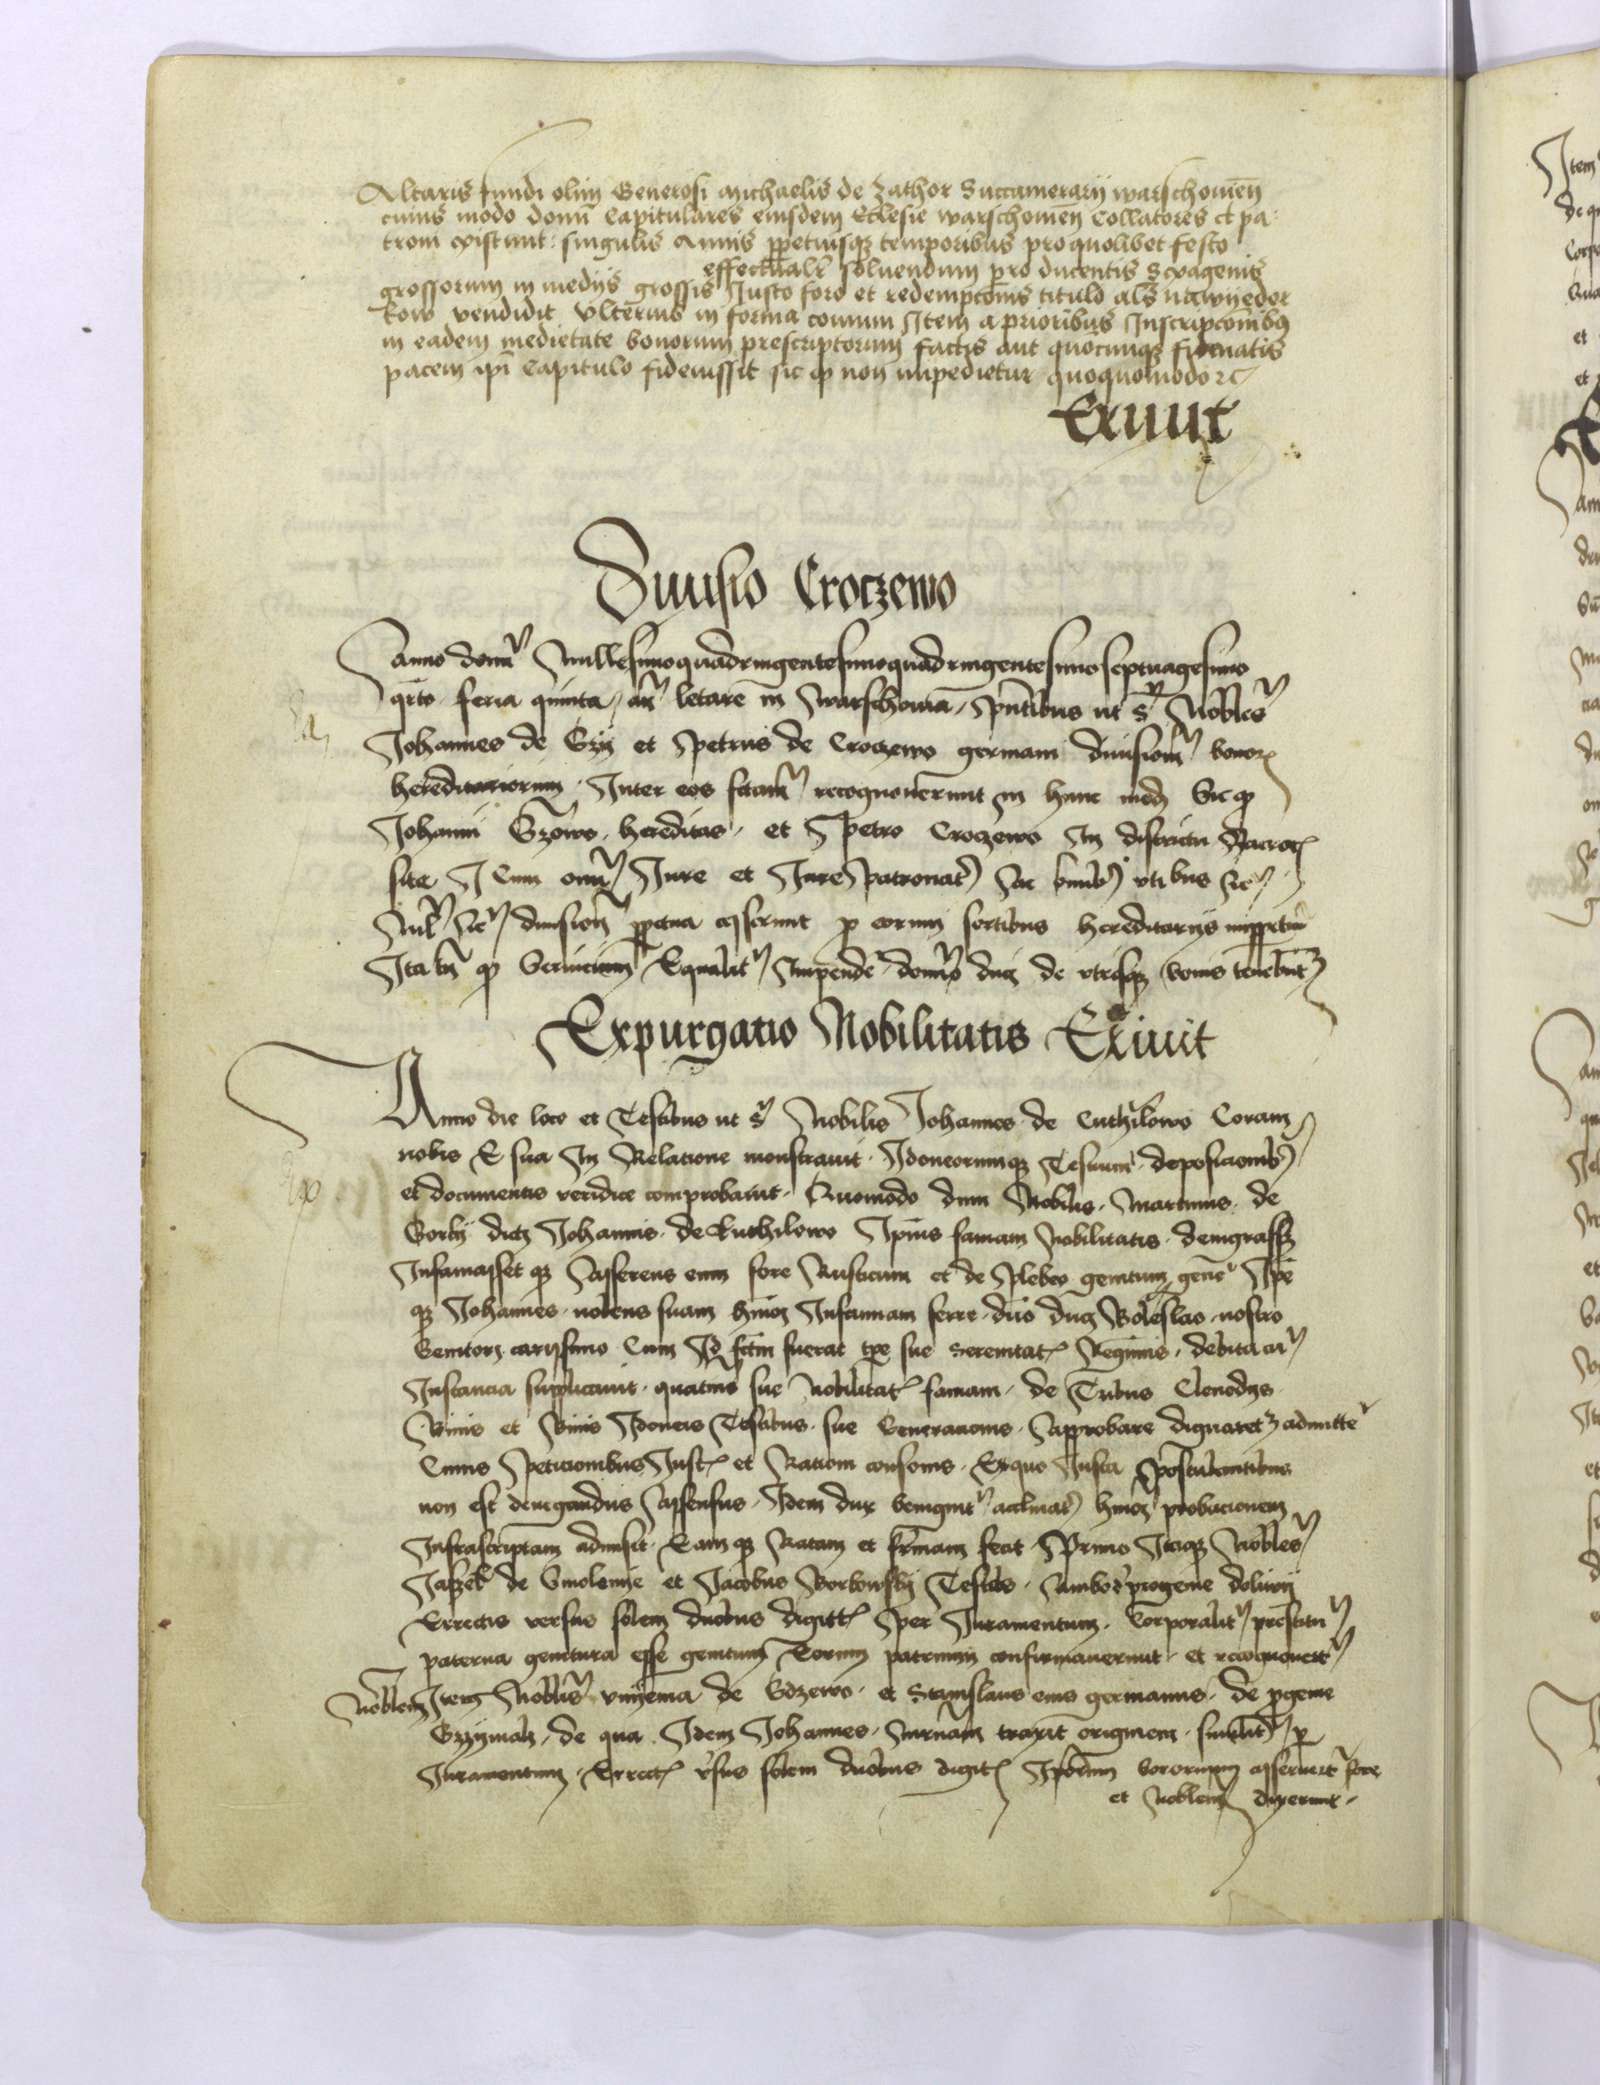 Altaris fundi olim Generosi Michaelis de Zathor Succamerarij warschouien
cuius modo domi Capitulares eiusdem Ecclesie warschouien Collatores et pa
troni existunt: singulis Annis ppetuisqz temporibus pro quolibet festo
effectualr soluendum pro ducentis Sexagenis
grossorum in medijs grossis Iusto foro et redempconis titulo als nawyeder
kow vendidit vlterius in forma comuni Item a prioribus Inscripcoibus
in eadem medietate bonorum prescriptorum factis aut quocunqz
pacem ipi Capitulo fideiussit sic qp non impedietur quoquomodo rc
Exiuit
Diuisio Croczewo
Anno domi Millesimoquadringentesimoquadringentesimoseptuagesimo
qrto feria quinta an letare in Warschouia, Pntibus ut s Nobles
Johannes de Gzy et Petrus de Croczewo germani diuisiom bonor
hereditariorum Inter eos fctam recognouerunt In hunc mod Sic qp
Johanni Gzowo hereditas et Petro Croczewo In districtu Zacroc
site Cum omi Jure et Jure Patronat Ac vtibus Ac
Ac diuisiom ppetua asserunt p eorum sortibus hereditarijs
Ita tn qp Seruicium Equalit Impende domo duci de vtrisqz bonis tenebunt
Expurgatio Nobilitatis Exiuit
Anno die loco et Testibus ut s Nobilis Johannes de Cuthilowo Coram
nobis E sua In Relatione monstrauit Idoneorumqz Testium deposicionib
et documentis veridice comprobauit Quomodo dum Nobilis Martinus de
Gorky dictz Johannis de Kuthilowo Ipius famam Nobilitatis denigrassz
Infamasset qz Asserens eum fore Rusticum et de Plebeo genitum gene Ipe
qz Johannes nolens suam hmoi Infamiam ferre dno duci Boleslao nostro
Genitori carissimo Cum Id fctm fuerat tpe sue serenitat Regiminis debita
Instancia supplicauit quatenus sue Nobilitat famam de Tribus Clenodijs
Binis et Binis Idoneis Testibus sue Generacionis Approbare dignaret admitte
Cuius Peticionibus Just et Rationi consonis Ex quo Justa Postulantibus
non est denegandus Assensus Idem dux benignit acclinat hmoi probacionem
Infrascriptam admisit Eam qz Ratam et firmam fecit Primo Itaqz Nobles
de Smolenye et Jacobus Borkowsky Testes Ambo progenie
Errectis versus solem duobus digitt Per Juramentum Corporalit prestitu
paterna genitura esse genitum Eorum patruum confirmauerunt et recognouert
Noblem Item Nobles vnyema de Gdzewo et Stanislaus eius germanus de pgenie
Grzymala, de qua Idem Johannes traxit originem similit p
Juramentum Errect vsus solem duobus digit Ipsorum Sororium asseruert fore
et Noblem dixerunt